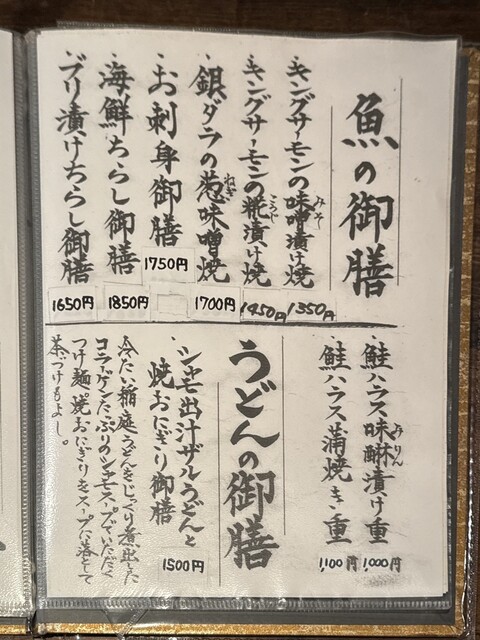 魚の御膳
・キングサーモンの味噌漬け焼
みそ
1350円
・キングサーモンの糀漬け焼
こうじ
1450円
・銀ダラの葱味噌焼
ねぎ
1700円
・お刺身御膳
1750円
・海鮮ちらし御膳
1850円
・ブリ漬けちらし御膳
1650円
・鮭ハラス味醂漬け重
みりん
1,000円
・鮭ハラス蒲焼き重
1,100円
うどんの御膳
・シャモ出汁ザルうどんと
焼おにぎり御膳
1500円
冷たい稲庭うどんをじっくり煮出した
コラーゲンたっぷりのシャモスープでいただく
つけ麺。焼おにぎりをスープに落として
茶づけもよし。